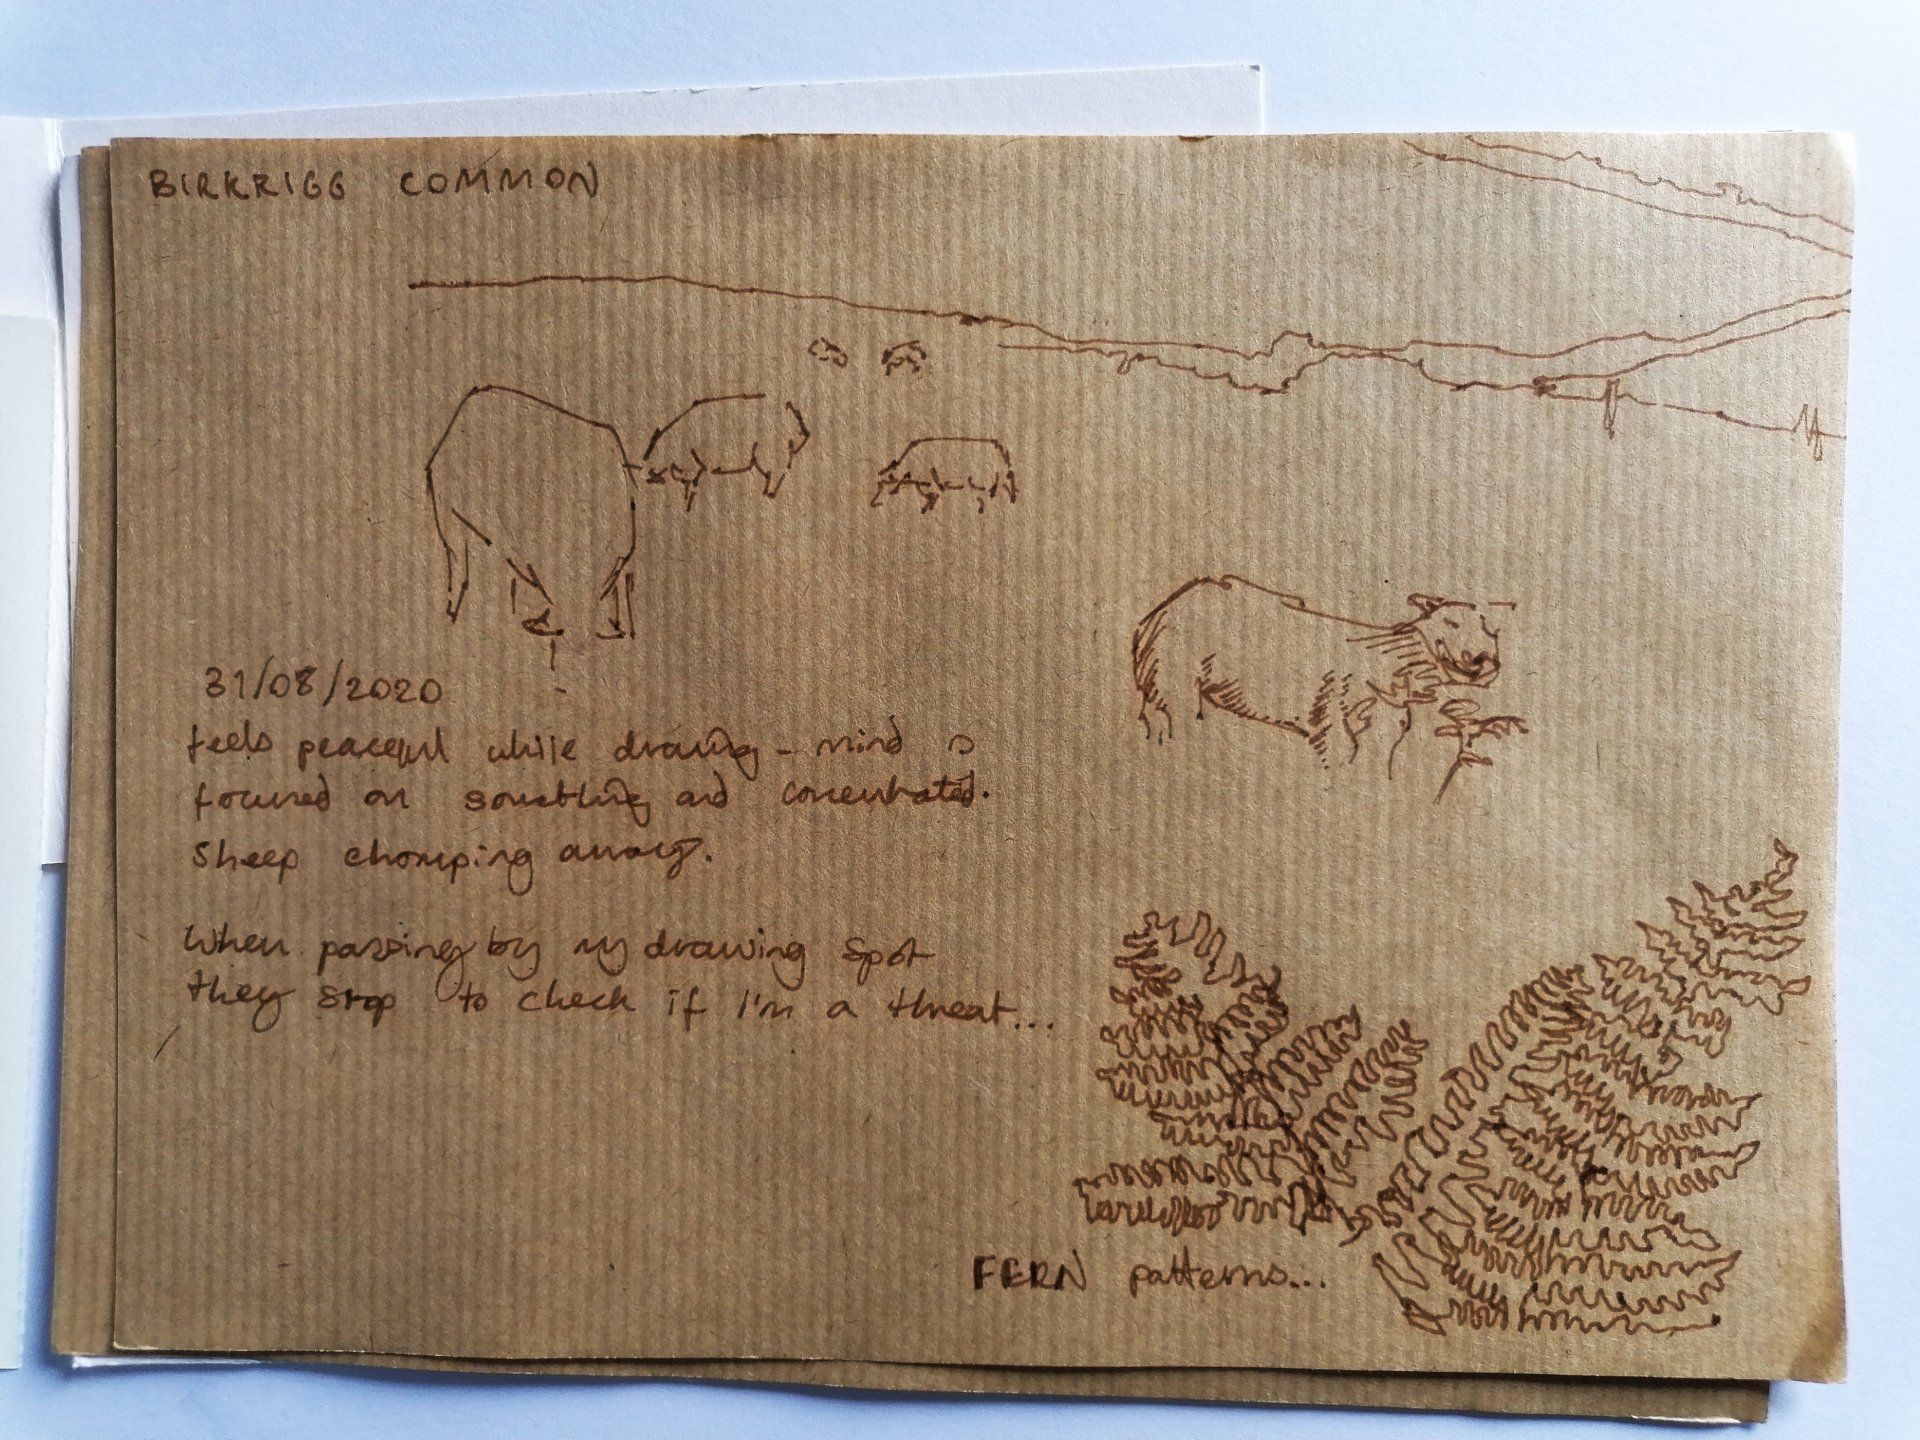 BIRKRIGG COMMON
31/08/2020
feels peaceful while drawing - mind is
focused on something and concentrated.
Sheep chomping away.
When passing by my drawing spot
they stop to check if I'm a threat...
FERN patterns...